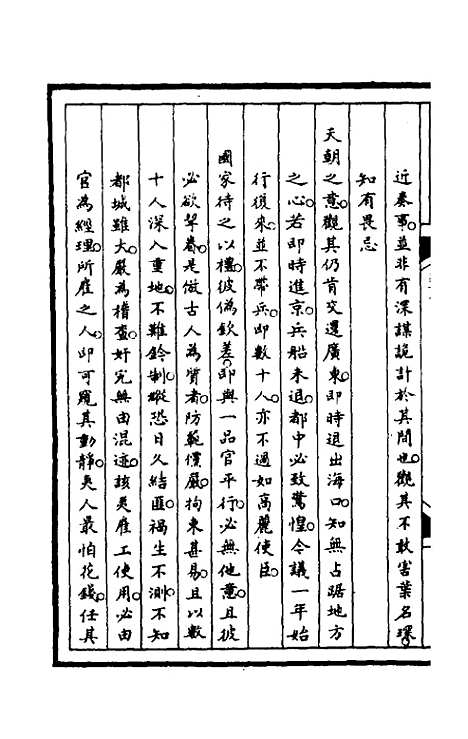 近秦事。並非有深謀詭計於其間也。觀其不敢害葉名琛。
知有畏忌
天朝之意。觀其仍肯交還廣東。即時退出海口。知無占踞地方
之心。若即時進京。兵船未退。都中必致驚惶。今議一年始
行復來。並不帶兵。即數十人。亦不過如高麗使臣。
國家待之以禮。彼偽欽差。即與一品官平行。必無他意。且彼
必欲挈眷。是倣古人為質者。防範儻嚴。拘束甚易。且以數
十人深入重地。不難鈐制。縱恐日久結匪。禍生不測。不知
都城雖大。嚴為稽查。奸宄無由混迹。該夷雇工使用。必由
官為經理。所雇之人。即可窺其動靜。夷人最怕花錢。任其